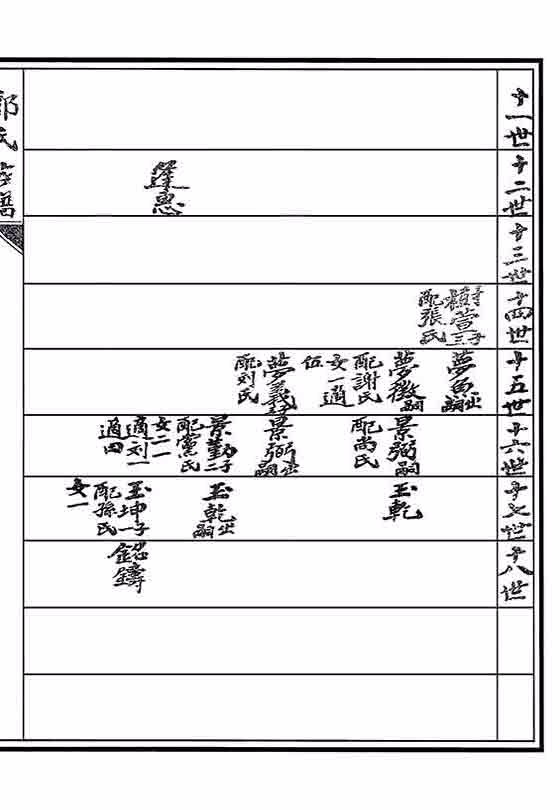 十一世
十二世
十三世
十四世
十五世
十六世
十七世
十八世
蓬惠
樹萱三子
配張氏
夢魚出嗣
夢徵嗣
配謝氏
女一適
伍
夢義子
配刘氏
景弼嗣
配尚氏
景弼出嗣
景勤二子
配黨氏
女二一
適刘一
適田
玉乾
玉乾出嗣
玉坤一子
配孫氏
女一
鋁鑄
郭氏族譜